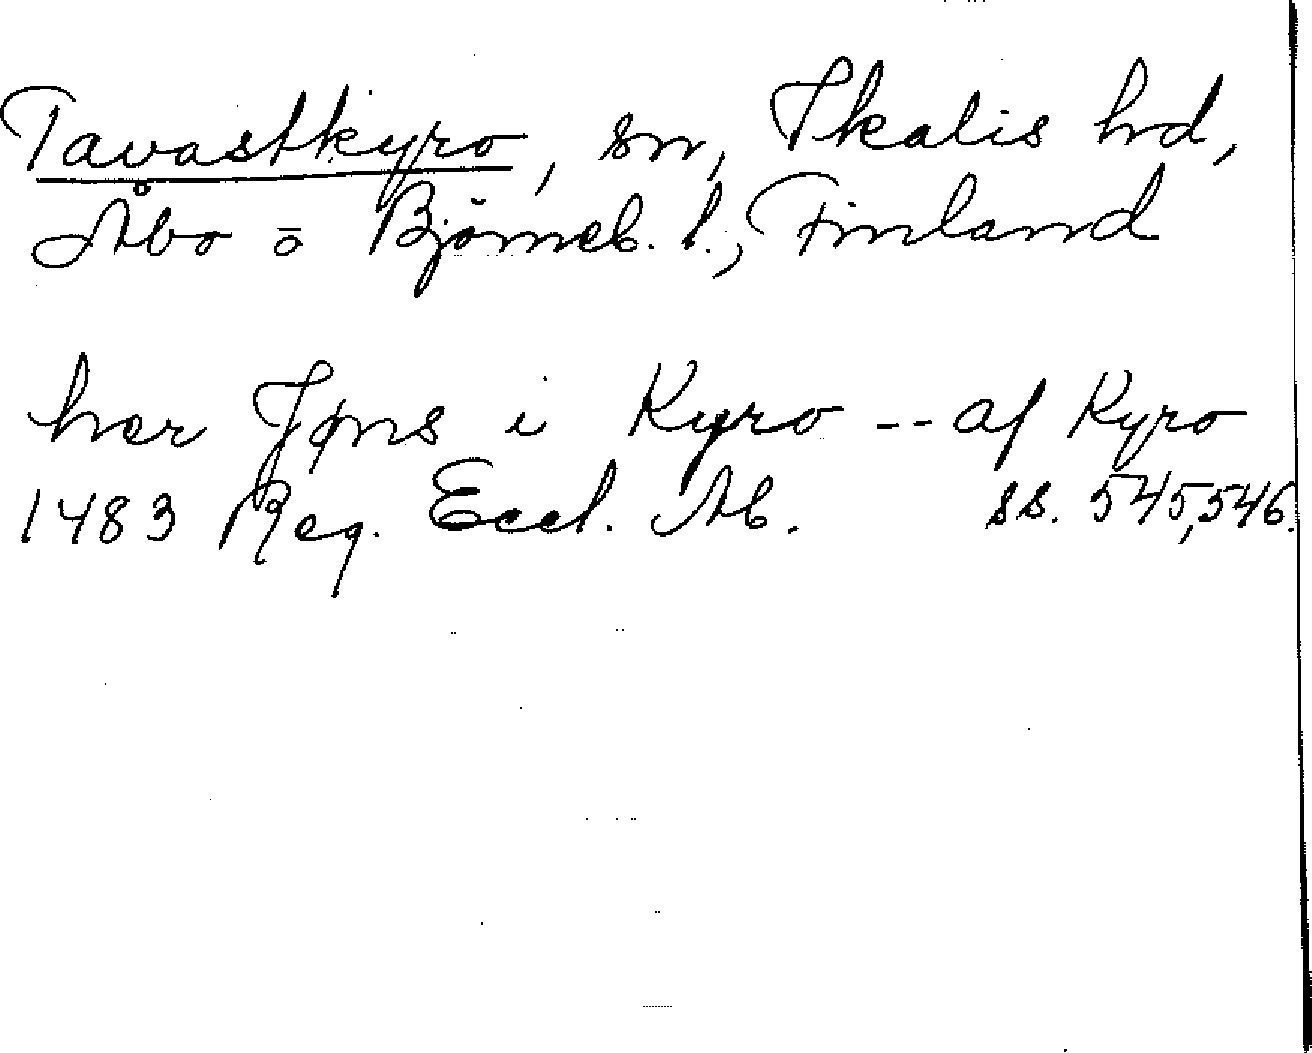 Tavastkyro, sn, Ikalis hd,
Åbo o Björneb. l., Finland
her Jøns i Kyro -- af Kyro
1483 Reg. Eccl. Ab. ss. 545, 546.